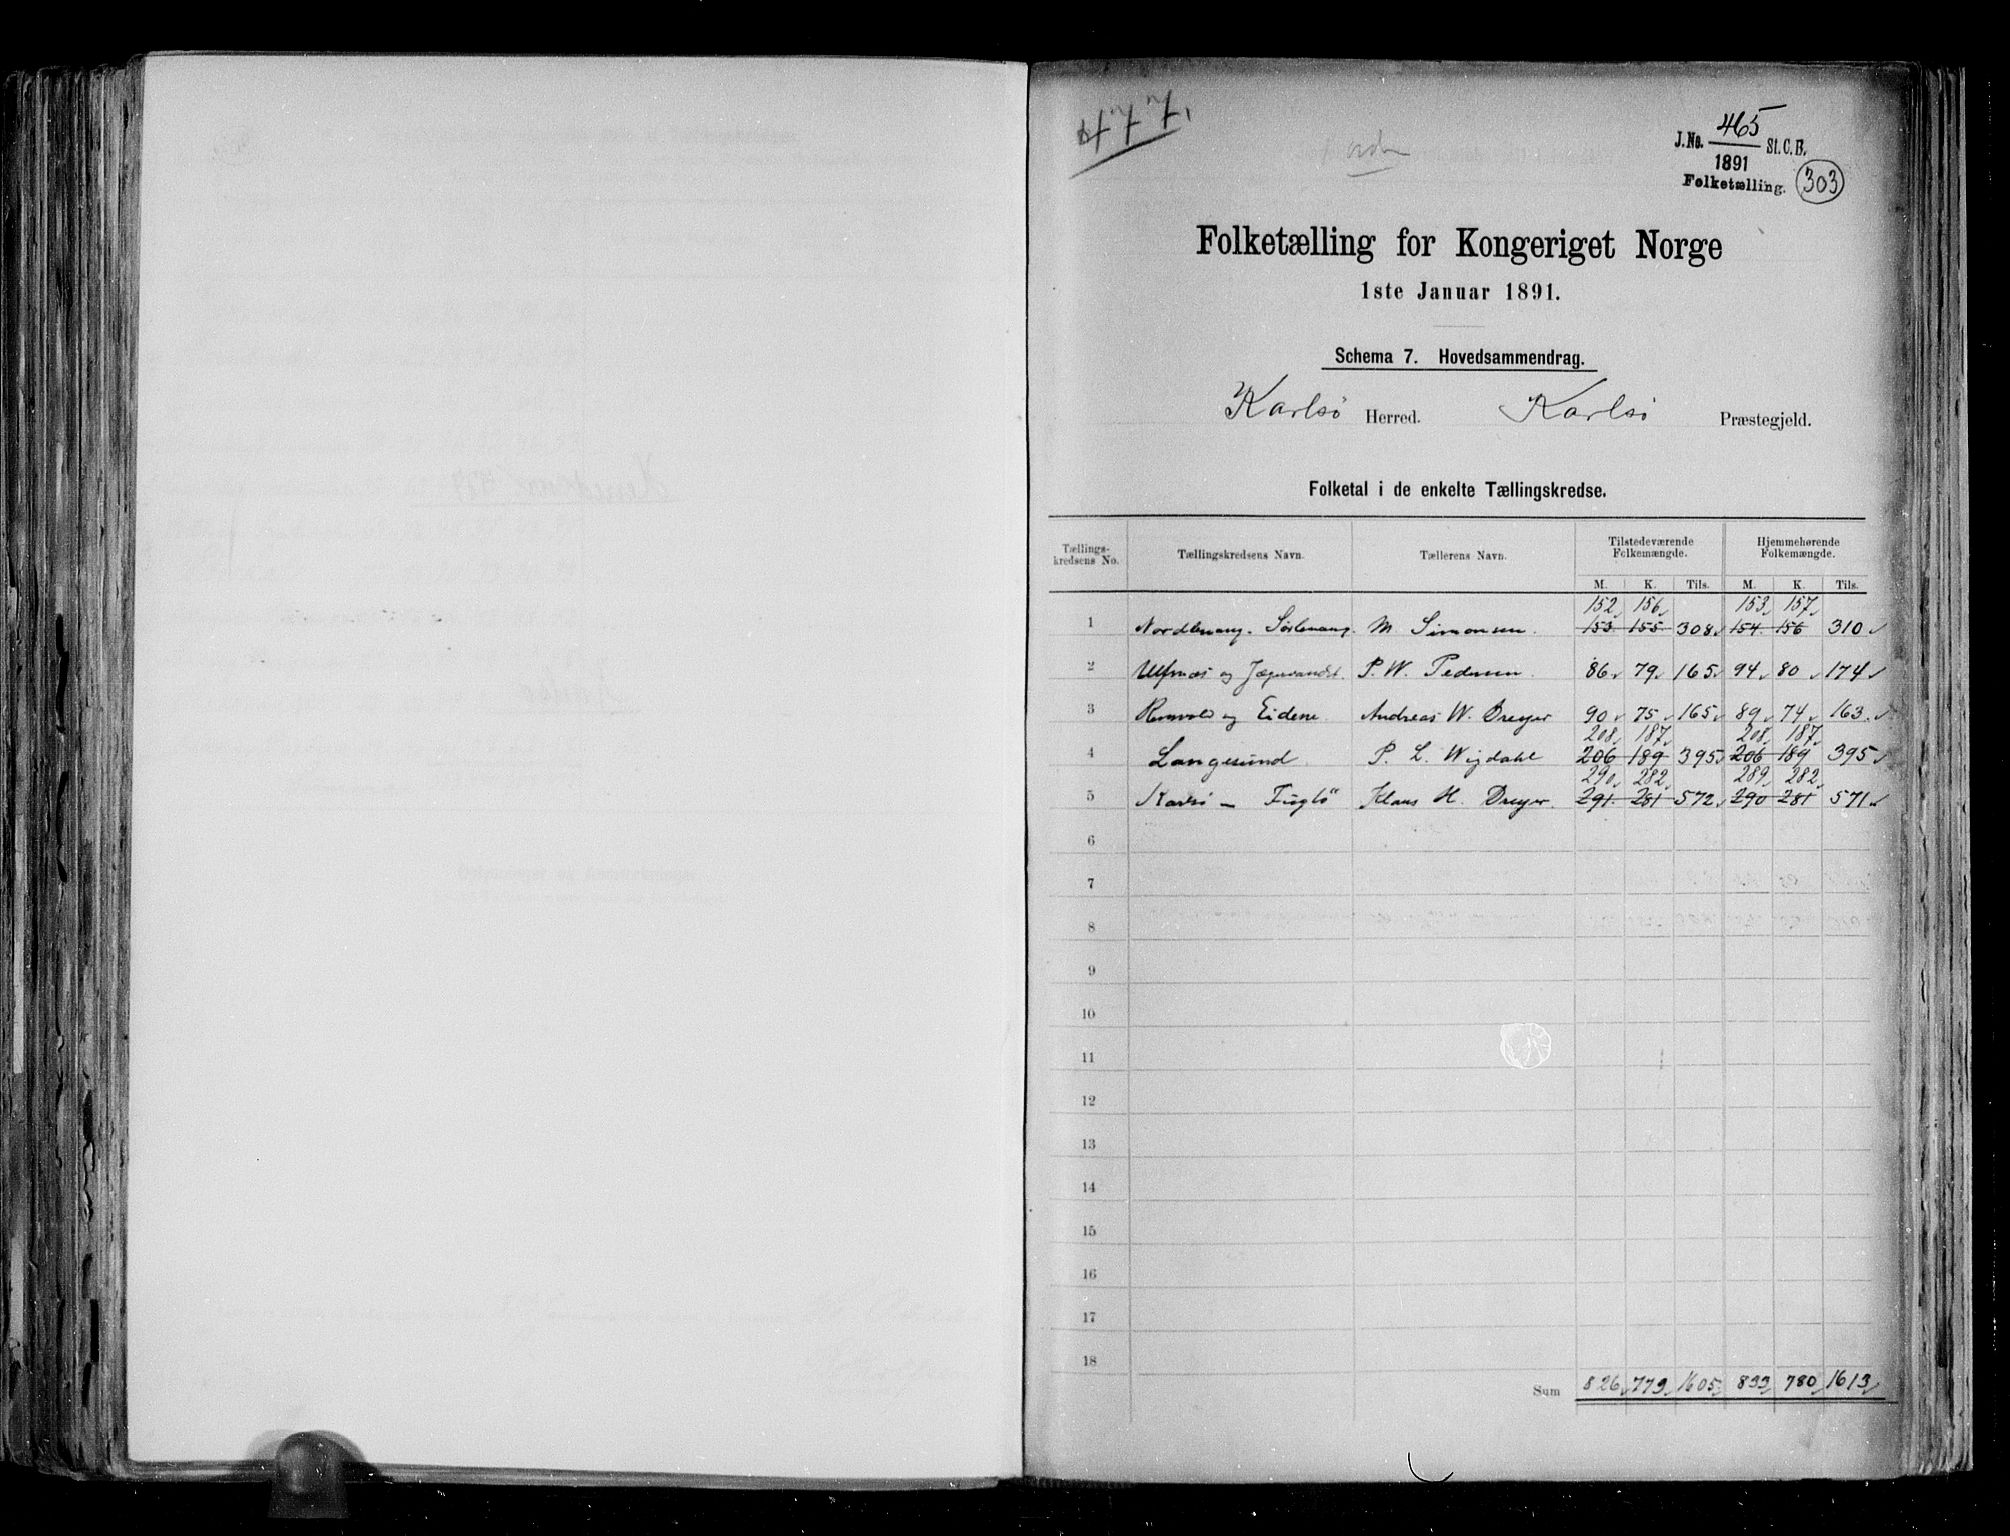 477.
J.No. 465 St. C. B.
1891
Folketælling. 303
Folketælling for Kongeriget Norge
1ste Januar 1891.
Schema 7. Hovedsammendrag.
Karlsö Herred. Karlsö Præstegjeld.
Folketal i de enkelte Tællingskredse.
Tællings-kredsens No. Tællingskredsens Navn. Tællerens Navn. Tilstedeværende Folkemængde. Hjemmehørende Folkemængde.
M. K. Tils. M. K. Tils.
152 156 153 157
1 Nordlenang. Sörlenang. M Simonsen. 153 155 308 154 156 310
2 Ulfsnæs og Jægervandet. P. W. Pedersen. 86 79 165 94 80 174
3 og Eidene. Andreas W. Dreyer 90 75 165 89 74 163
208 187 208 187
4 Langesund. P. L. Wigdahl 206 189 395 206 189 395
290 282 289 282
5 Karlsö - Fuglö Klaus H. Dreyer. 291 281 572 290 281 571
6
7
8
9
10
11
12
13
14
15
16
17
18
Sum 826 779 1605 833 780 1613